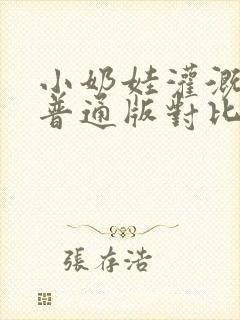 小奶娃灌溉
普通版對比
張存浩